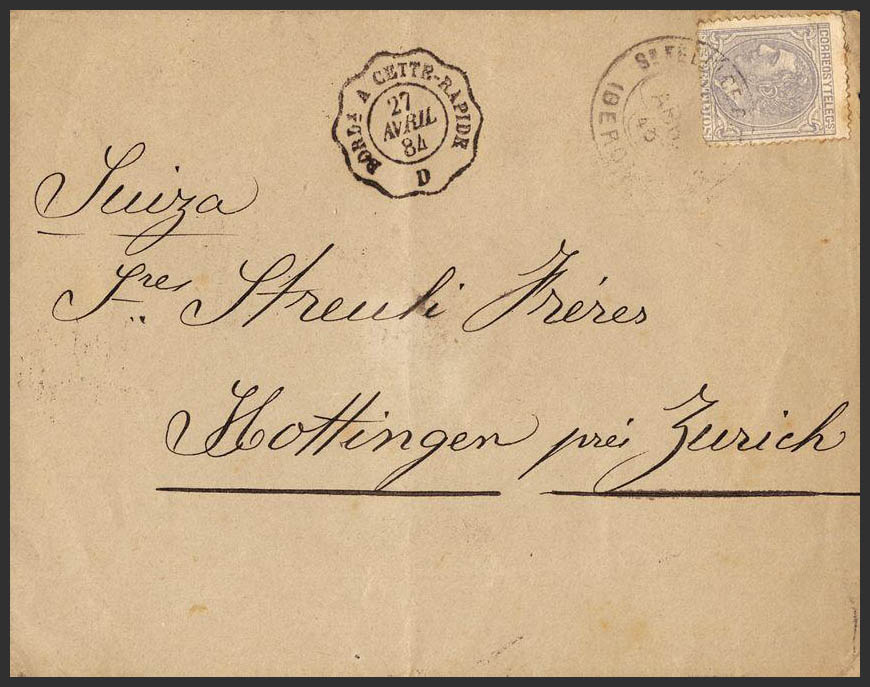 BORDx A CETTE-RAPIDE
27
AVRIL
84
D
CORREOS Y TELEGs
Suiza
Sres Streuli Fréres
Hottingen prés Zurich